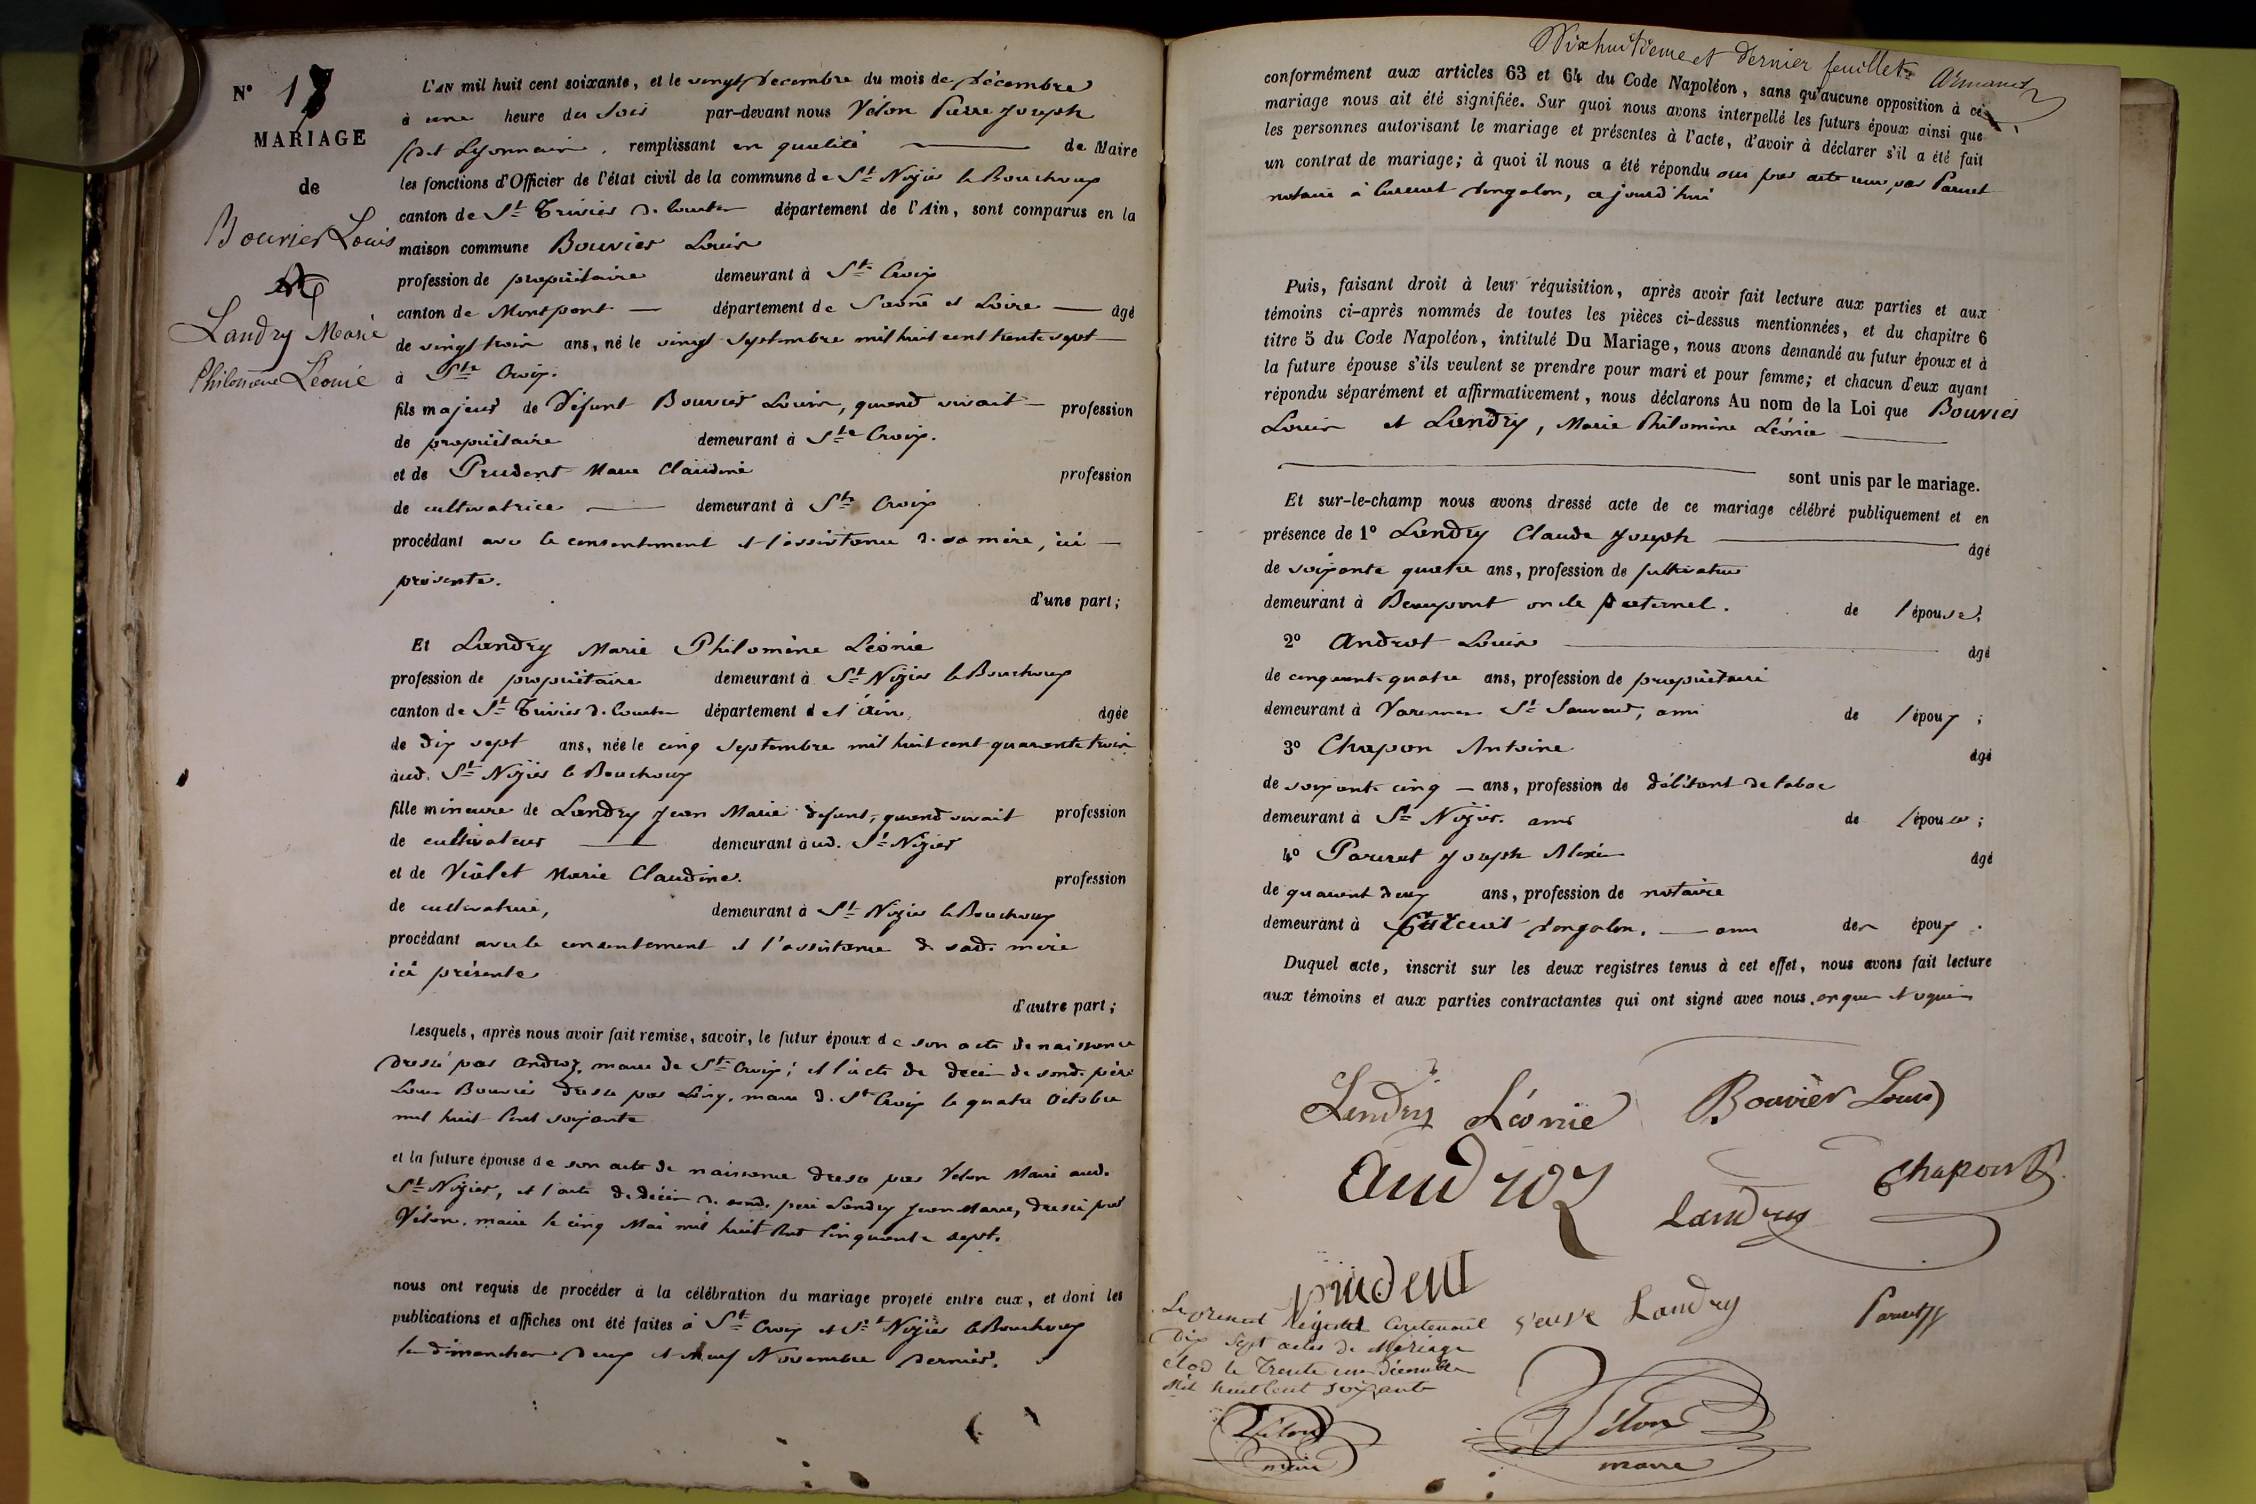 N° 17
MARIAGE
de
Bouvier Louis
et
Landry Marie
Philomène Léonie
L'AN mil huit cent soixante, et le vingt Décembre du mois de Décembre
à une heure du Soir par-devant nous Vélon Pierre Joseph
remplissant en qualité de Maire
les fonctions d'Officier de l'état civil de la commune de St Nizier le Bouchoux
canton de St Trivier de Courtes département de l'Ain, sont comparus en la
maison commune Bouvier Louis
profession de propriétaire demeurant à Ste Croix
canton de Montpont département de Saône et Loire agé
de vingt trois ans, né le vingt Septembre mil huit cent trente sept
à Ste Croix.
fils majeur de défunt Bouvier Louis, quand vivait profession
de propriétaire demeurant à Ste Croix.
et de Prudent Marie Claudine profession
de cultivatrice demeurant à Ste Croix
procédant avec le consentement et l'assistance de sa mère, ici
présente.
d'une part;
Et Landry Marie Philomène Léonie
profession de propriétaire demeurant à St Nizier le Bouchoux
canton de St Trivier de Courtes département de l'Ain, agée
de dix sept ans, née le cinq Septembre mil huit cent quarante trois
aud. St Nizier le Bouchoux
fille mineure de Landry Jean Marie défunt, quand vivait profession
de cultivateur demeurant aud. St Nizier
et de Violet Marie Claudine. profession
de cultivatrice, demeurant à St Nizier le Bouchoux
procédant avec le consentement et l'assistance de sad. mère
ici présente
d'autre part;
Lesquels, après nous avoir fait remise, savoir, le futur époux de son acte de naissance
dressé par Androz, maire de Ste Croix; et l'acte de décès de sond. père
Louis Bouvier dressé par maire de Ste Croix le quatre Octobre
mil huit cent soixante
et la future épouse de son acte de naissance dressé par Vélon Maire aud.
St Nizier, et l'acte de décès de sond. père Landry Jean Marie, dressé par
Vélon, maire le cinq Mai mil huit cent cinquante sept.
nous ont requis de procéder à la célébration du mariage projeté entre eux, et dont les
publications et affiches ont été faites à Ste Croix et St Nizier le Bouchoux
les dimanches deux et neuf Novembre dernier.
Dixhuitieme et dernier feuillet Armanet
conformément aux articles 63 et 64 du Code Napoléon, sans qu'aucune opposition à ce
mariage nous ait été signifiée. Sur quoi nous avons interpellé les futurs époux ainsi que
les personnes autorisant le mariage et présentes à l'acte, d'avoir à déclarer s'il a été fait
un contrat de mariage; à quoi il nous a été répondu oui par acte reçu par Parret
notaire à Curciat dongalon, ce jourd'hui
Puis, faisant droit à leur réquisition, après avoir fait lecture aux parties et aux
témoins ci-après nommés de toutes les pièces ci-dessus mentionnées, et du chapitre 6
titre 5 du Code Napoléon, intitulé Du Mariage, nous avons demandé au futur époux et à
la future épouse s'ils veulent se prendre pour mari et pour femme; et chacun d'eux ayant
répondu séparément et affirmativement, nous déclarons Au nom de la Loi que Bouvier
Louis et Landry, Marie Philomène Léonie
sont unis par le mariage.
Et sur-le-champ nous avons dressé acte de ce mariage célébré publiquement et en
présence de 1° Landry Claude Joseph agé
de soixante quatre ans, profession de cultivateur
demeurant à Beaupont oncle paternel. de l'épouse;
2° Androt Louis agé
de cinquante quatre ans, profession de propriétaire
demeurant à Varennes St Sauveur, ami de l'époux;
3° Chapon Antoine agé
de soixante cinq ans, profession de débitant de tabac
demeurant à St Nizier. ami de l'épouse;
4° Parret Joseph Alexis agé
de quarante deux ans, profession de notaire
demeurant à Curciat dongalon. ami des époux.
Duquel acte, inscrit sur les deux registres tenus à cet effet, nous avons fait lecture
aux témoins et aux parties contractantes qui ont signé avec nous.
Landry Léonie Bouvier Louis
Androz Landry Chapon
prudent
veuve Landry Parret
Le présent registre contenant
dix sept actes de Mariage
clos le Trente un Décembre
Mil huit Cent Soixante
Vélon
maire
Vélon
maire